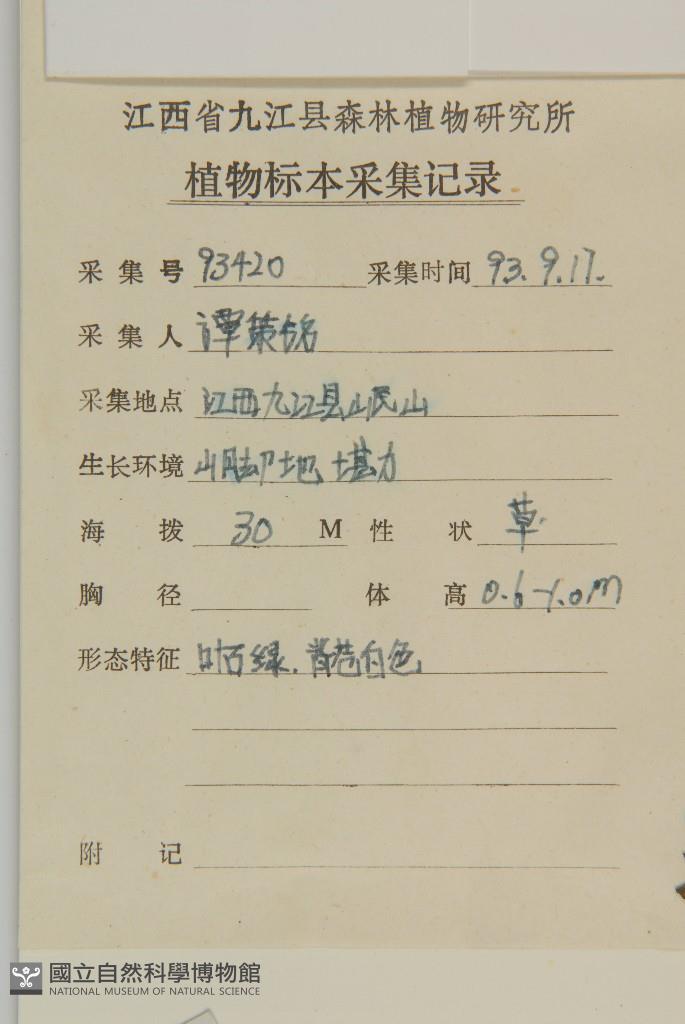 江西省九江县森林植物研究所
植物标本采集记录
采集号 93420 采集时间 93.9.17.
采集人 譚策铭
采集地点 江西九江县岷山
生长环境 山脚地
海拨 30 M 性状 草
胸径 体高 0.6-1.0M
形态特征 叶面绿.背苍白色
附记
國立自然科學博物館
NATIONAL MUSEUM OF NATURAL SCIENCE